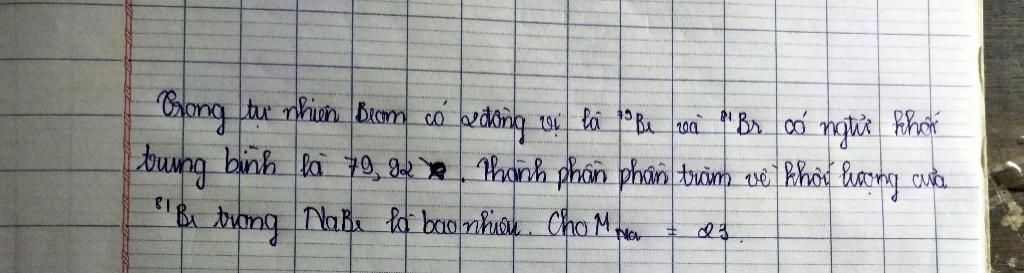 Trong tự nhiên Brom có 2 đồng vị là ⁷⁹Br và ⁸¹Br có ngtử khối
trung bình là 79,92. Thành phần phần trăm về khối lượng của
⁸¹Br trong NaBr là bao nhiêu. Cho M Na = 23.